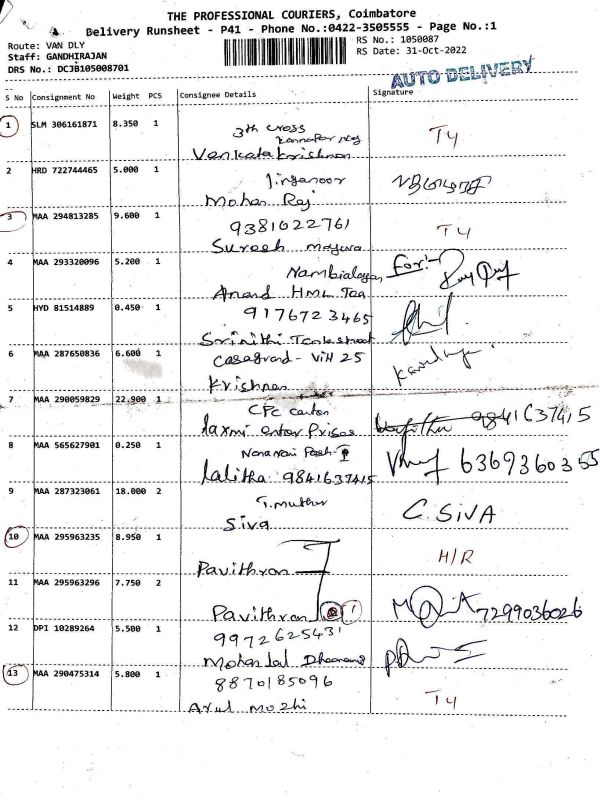 THE PROFESSIONAL COURIERS, Coimbatore
Delivery Runsheet - P41 - Phone No.:0422-3505555 - Page No.:1
Route: VAN DLY
RS No.: 1050087
Staff: GANDHIRAJAN
RS Date: 31-Oct-2022
DRS No.: DCJB105008701
AUTO DELIVERY
S No Consignment No Weight PCS Consignee Details Signature
1 SLM 306161871 8.350 1
3th cross
Venkatakrishnan
T4
2 HRD 722744465 5.000 1
Mohan Raj
3 MAA 294813285 9.600 1
9381022761
Suresh
T4
4 MAA 293320096 5.200 1
For:-
Anand HML Tea
5 HYD 81514889 0.450 1
9176723465
Srinithi
6 MAA 287650836 6.600 1
casagrand - VIH 25
Krishnan
7 MAA 290059829 22.900 1
CPC canton
laxmi enterprises
9841637415
8 MAA 565627901 0.250 1
lalitha 9841637415
6369360355
9 MAA 287323061 18.000 2
T. muthu
Siva
C. SIVA
10 MAA 295963235 8.950 1
Pavithran
H/R
11 MAA 295963296 7.750 2
Pavithran
7299036026
12 DPI 10289264 5.500 1
9972625431
Mohan lal
13 MAA 290475314 5.800 1
8870185096
Arul mozhi
T4